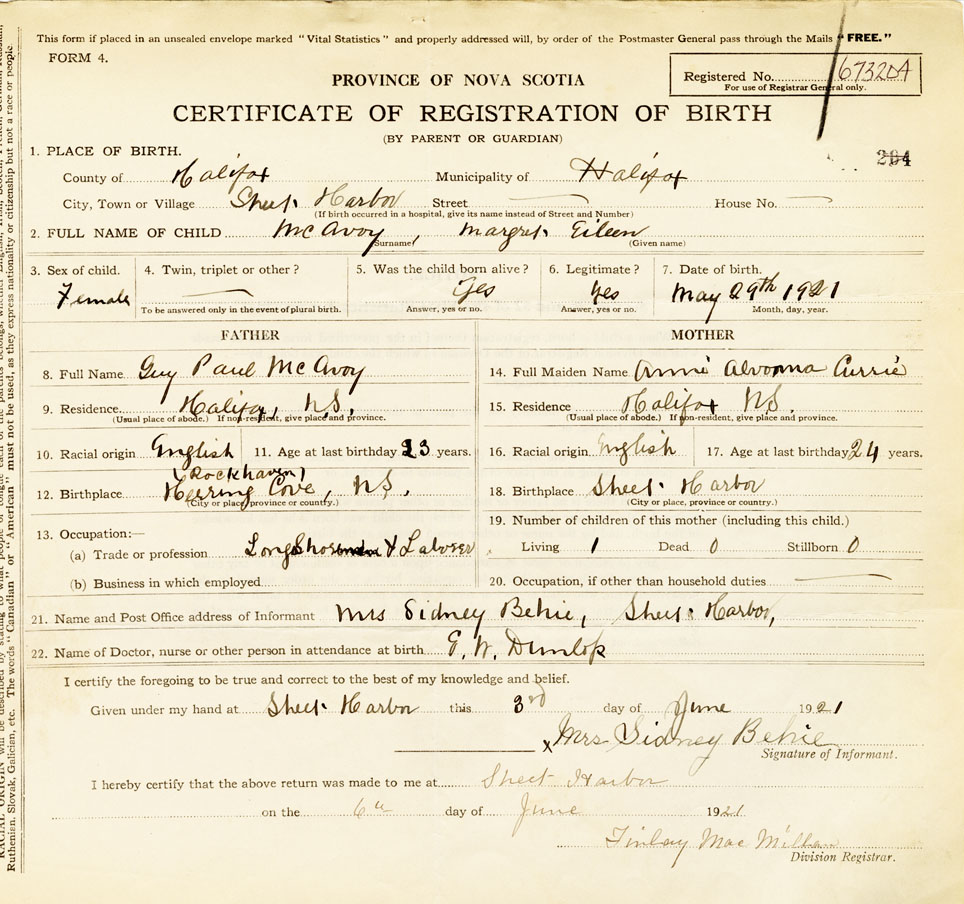 This form if placed in an unsealed envelope marked "Vital Statistics" and properly addressed will, by order of the Postmaster General pass through the Mails "FREE."
FORM 4.
PROVINCE OF NOVA SCOTIA
Registered No. 67320A
For use of Registrar General only.
CERTIFICATE OF REGISTRATION OF BIRTH
(BY PARENT OR GUARDIAN)
204
1. PLACE OF BIRTH.
County of Halifax Municipality of Halifax
City, Town or Village Sheet Harbor Street — House No. —
(If birth occurred in a hospital, give its name instead of Street and Number)
2. FULL NAME OF CHILD McAvoy, Margret Eileen
(Surname) (Given name)
3. Sex of child. 4. Twin, triplet or other? 5. Was the child born alive? 6. Legitimate? 7. Date of birth.
Female — Yes Yes May 29th 1921
To be answered only in the event of plural birth. Answer, yes or no. Answer, yes or no. Month, day, year.
FATHER MOTHER
8. Full Name Guy Paul McAvoy
9. Residence. Halifax, N.S.
(Usual place of abode.) If non-resident, give place and province.
10. Racial origin English 11. Age at last birthday 23 years.
(Rockhaven)
12. Birthplace Herring Cove, N.S.
(City or place, province or country.)
13. Occupation:—
(a) Trade or profession Longshoreman & Laborer
(b) Business in which employed
14. Full Maiden Name Annie Currie
15. Residence Halifax N.S.
(Usual place of abode.) If non-resident, give place and province.
16. Racial origin English 17. Age at last birthday 24 years.
18. Birthplace Sheet Harbor
(City or place, province or country.)
19. Number of children of this mother (including this child.)
Living 1 Dead 0 Stillborn 0
20. Occupation, if other than household duties —
21. Name and Post Office address of Informant Mrs Sidney Behie, Sheet Harbor,
22. Name of Doctor, nurse or other person in attendance at birth E. W. Dunlop
I certify the foregoing to be true and correct to the best of my knowledge and belief.
Given under my hand at Sheet Harbor this 3rd day of June 1921
x Mrs Sidney Behie
Signature of Informant.
I hereby certify that the above return was made to me at Sheet Harbor
on the 6th day of June 1921
Finlay MacMillan
Division Registrar.
RACIAL ORIGIN will be described by stating to what people or tongue each of the parents belongs, whether English, Irish, Scotch, French, German, Russian,
Ruthenian, Slovak, Galician, etc. The words "Canadian" or "American" must not be used, as they express nationality or citizenship but not a race or people